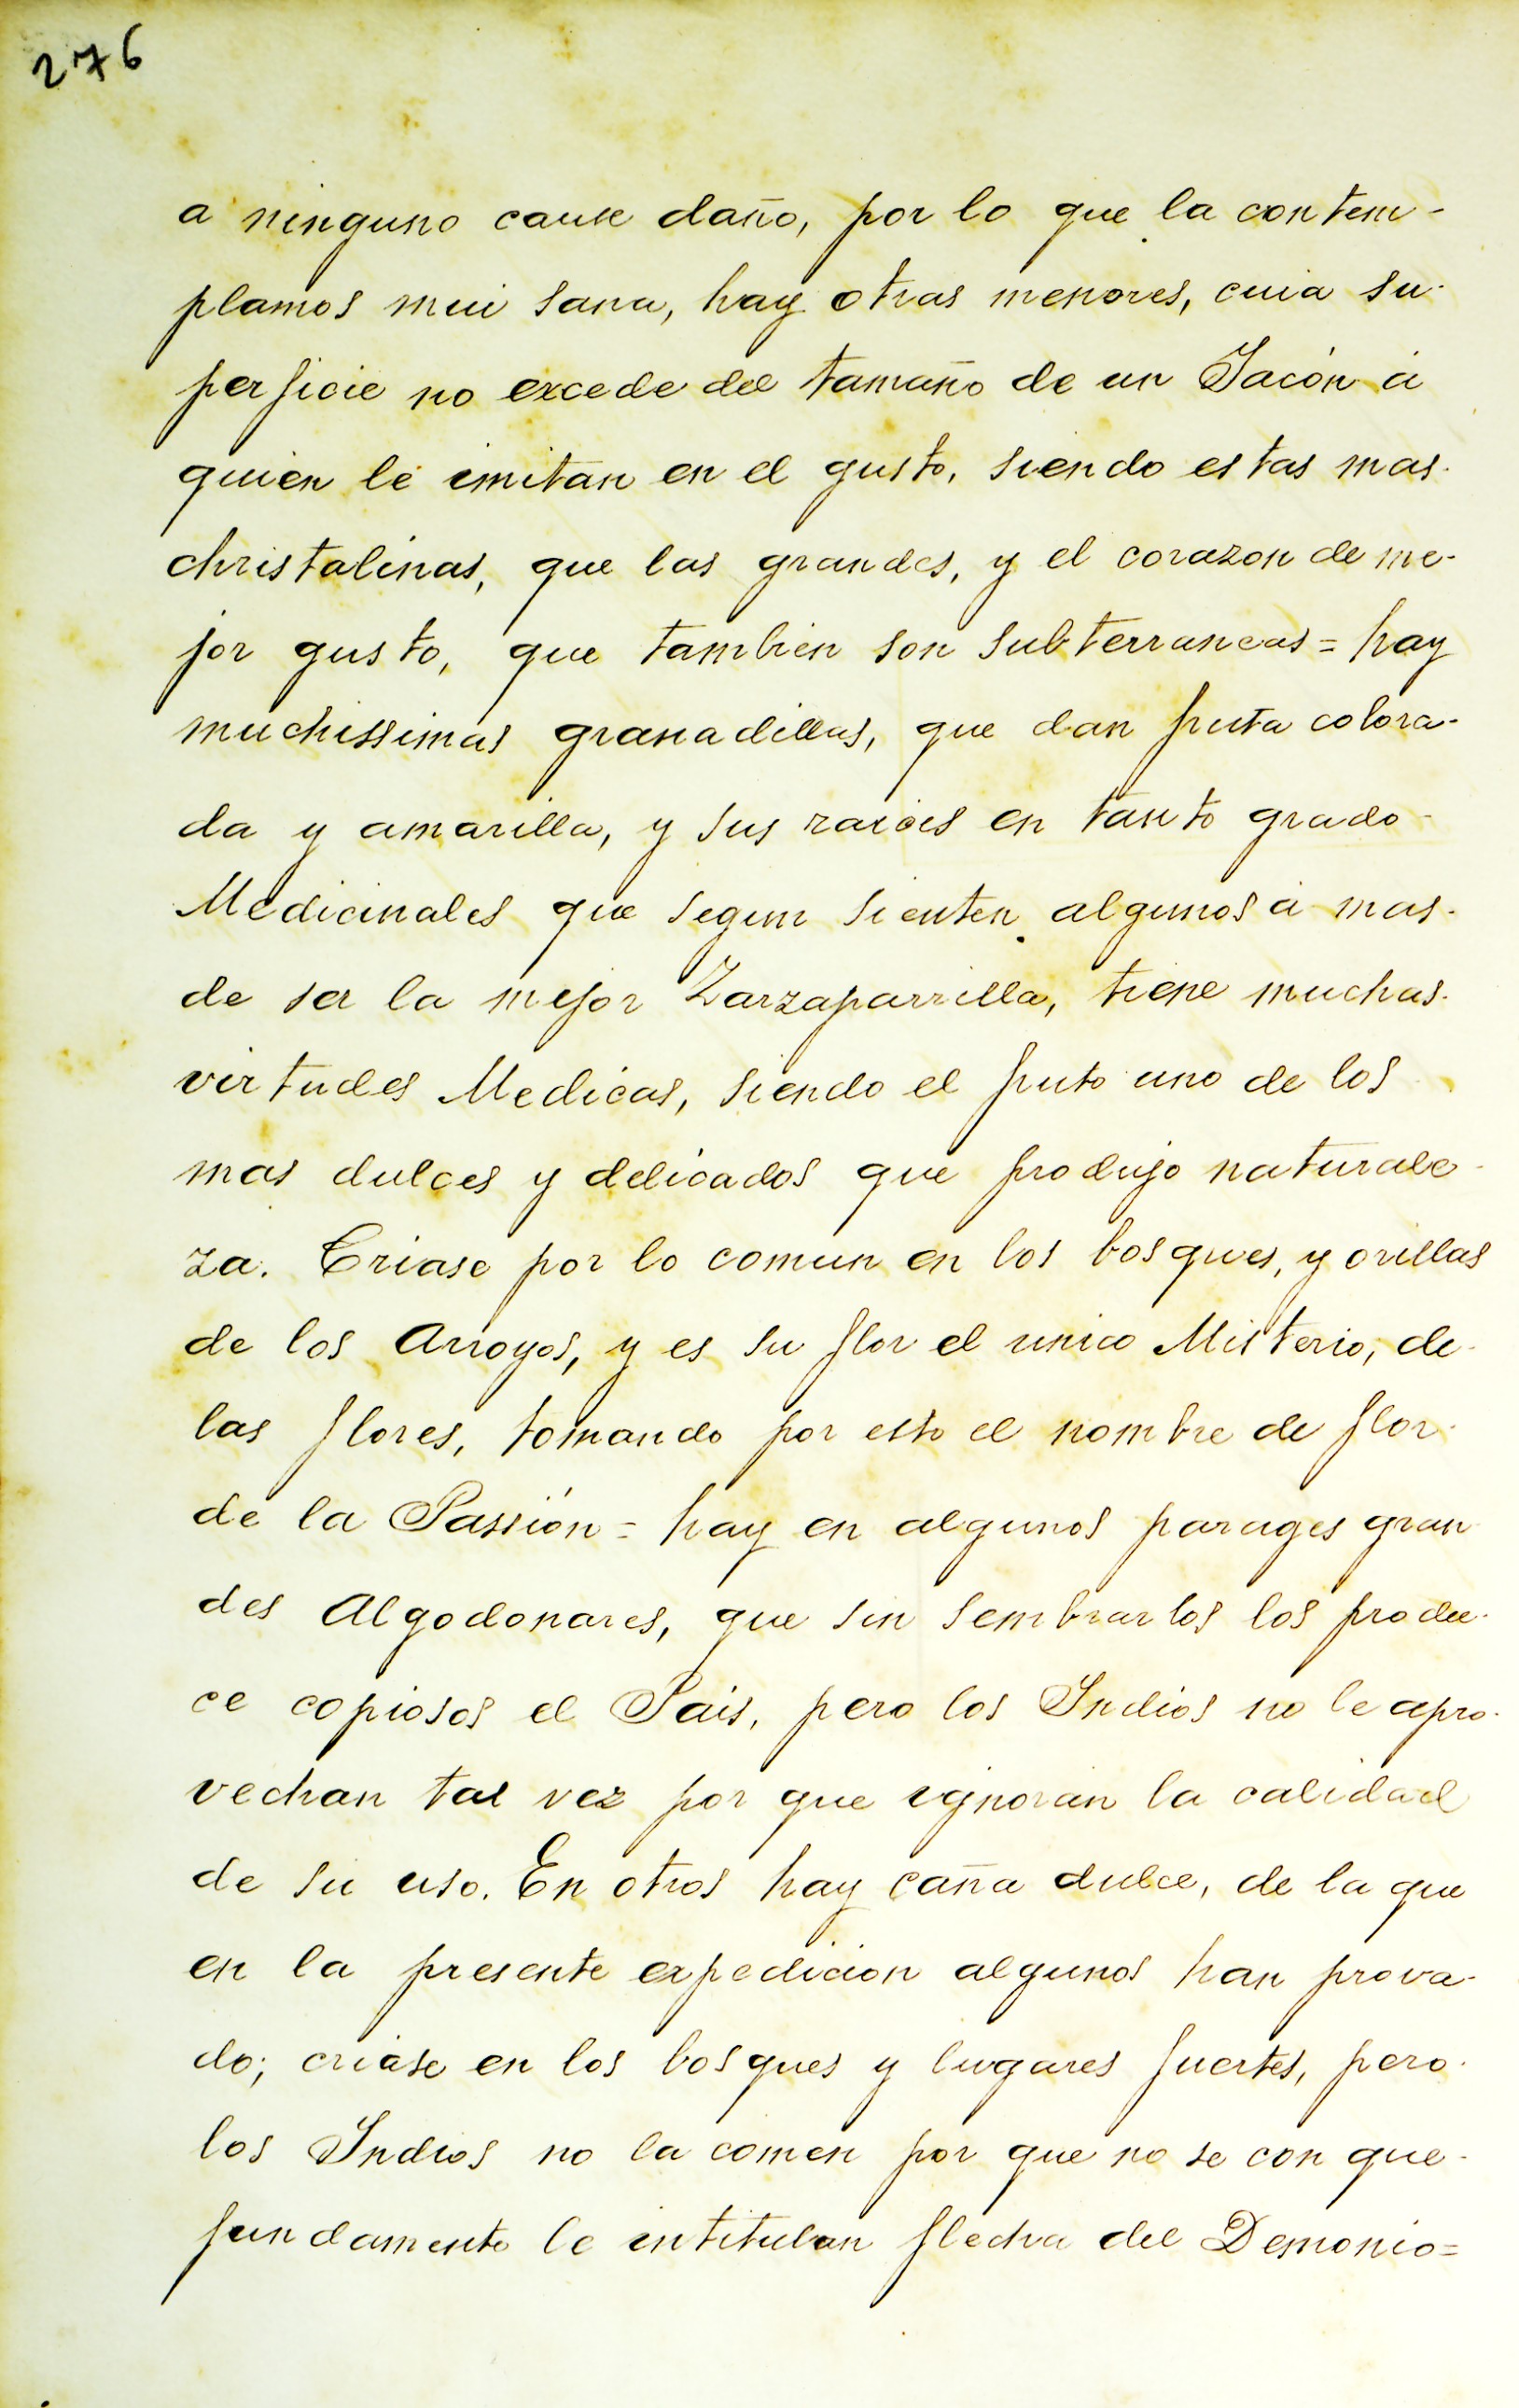 276
a ninguno cause daño, por lo que la contem-
plamos mui sana, hay otras menores, cuia su-
perficie no excede del tamaño de un Jacón á
quien le imitan en el gusto, siendo estas mas-
christalinas, que las grandes, y el corazon de me-
jor gusto, que tambien son subterraneas = hay
muchissimas granadillas, que dan fruta colora-
da y amarilla, y sus raices en tanto grado-
Medicinales que segun sienten algunos á mas-
de ser la mejor Zarzaparrilla, tiene muchas-
virtudes Medicas, siendo el fruto uno de los
mas dulces y delicados que produjo naturale-
za. Criase por lo comun en los bosques, y orillas
de los Arroyos, y es su flor el unico Misterio, de-
las flores, tomando por esto el nombre de flor-
de la Passión = hay en algunos parages gran
des Algodonares, que sin sembrarlos los produ-
ce copiosos el Pais, pero los Indios no le apro-
vechan tal vez por que ignoran la calidad
de su uso. En otros hay caña dulce, de la que
en la presente expedicion algunos han prova-
do; criase en los bosques y lugares fuertes, pero-
los Indios no la comen por que no se con que-
fundamento le intitulan flecha del Demonio=